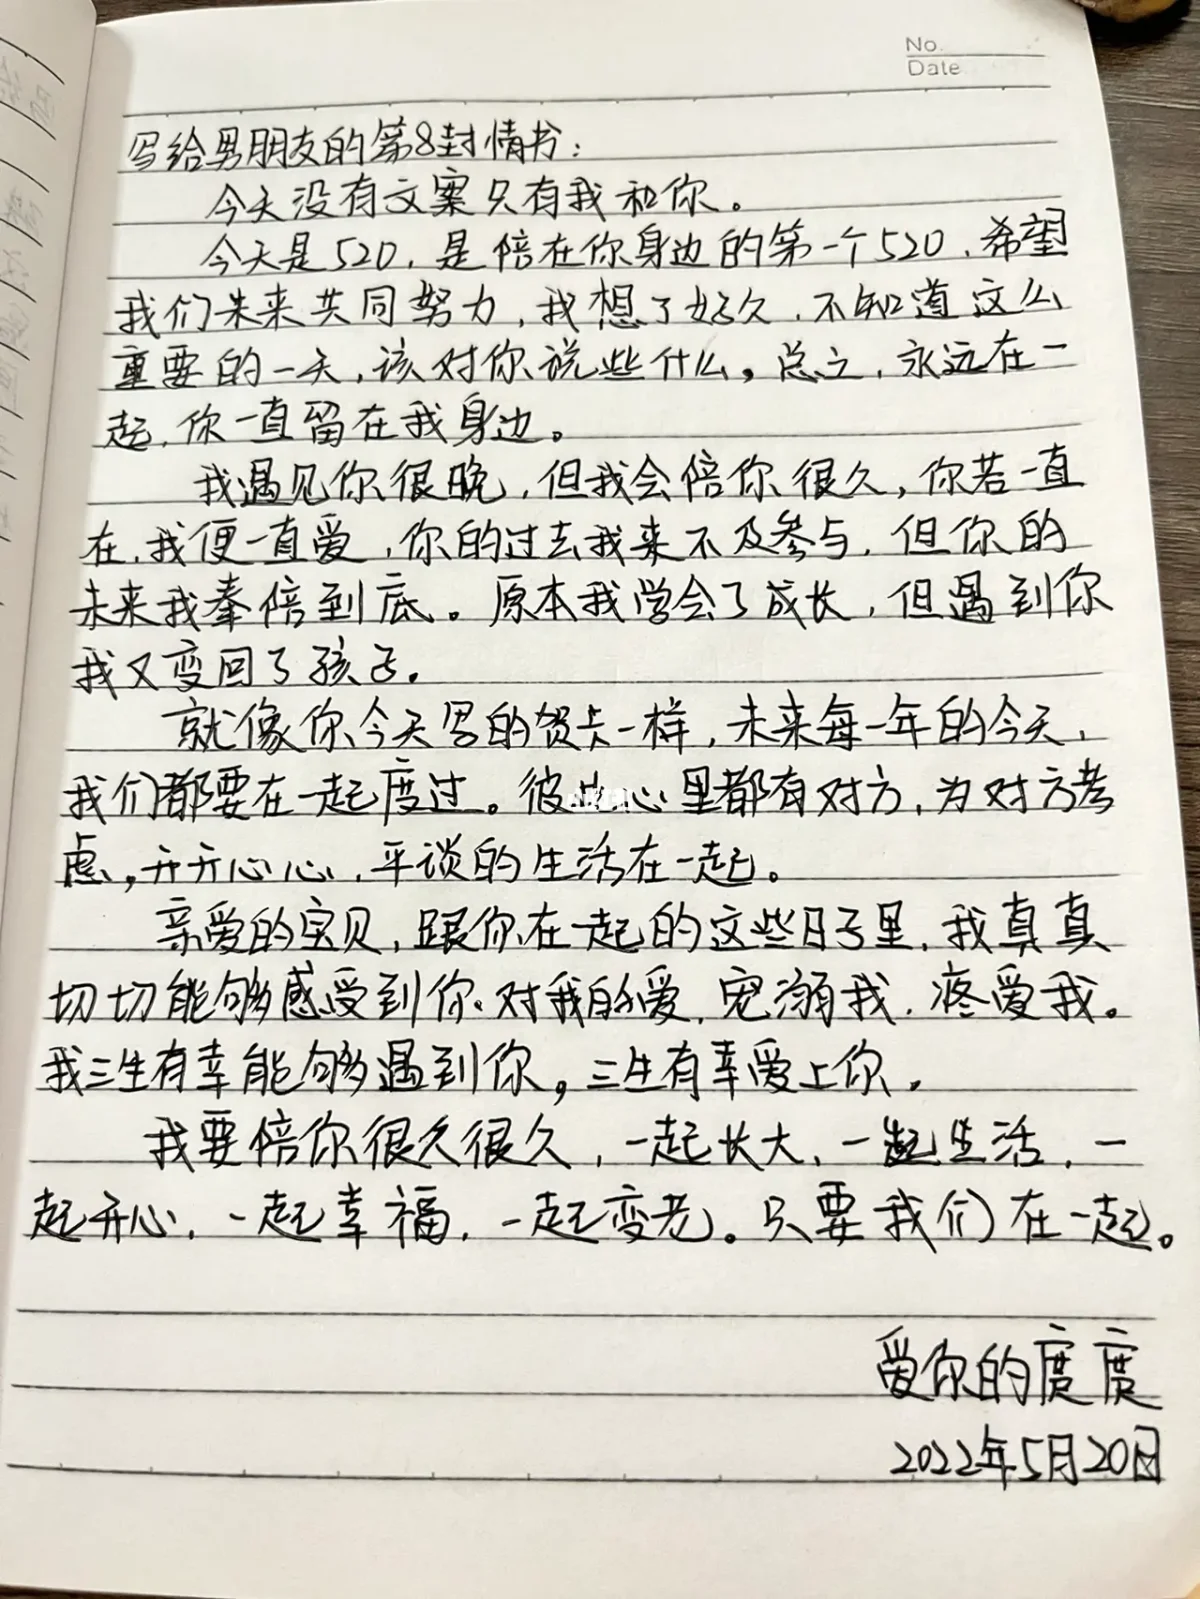 No.
Date
写给男朋友的第8封情书：
今天没有文案只有我和你。
今天是520，是陪在你身边的第一个520，希望
我们未来共同努力，我想了好久，不知道这么
重要的一天，该对你说些什么。总之，永远在一
起，你一直留在我身边。
我遇见你很晚，但我会陪你很久，你若一直
在，我便一直爱，你的过去我来不及参与，但你的
未来我奉陪到底。原本我学会了成长，但遇到你
我又变回了孩子。
就像你今天写的贺卡一样，未来每一年的今天，
我们都要在一起度过。彼此心里都有对方，为对方考
虑，开开心心，平谈的生活在一起。
亲爱的宝贝，跟你在一起的这些日子里，我真真
切切能够感受到你对我的爱，宠溺我，疼爱我。
我三生有幸能够遇到你，三生有幸爱上你。
我要陪你很久很久，一起长大，一起生活，一
起开心，一起幸福，一起变老。只要我们在一起。
爱你的度度
2022年5月20日